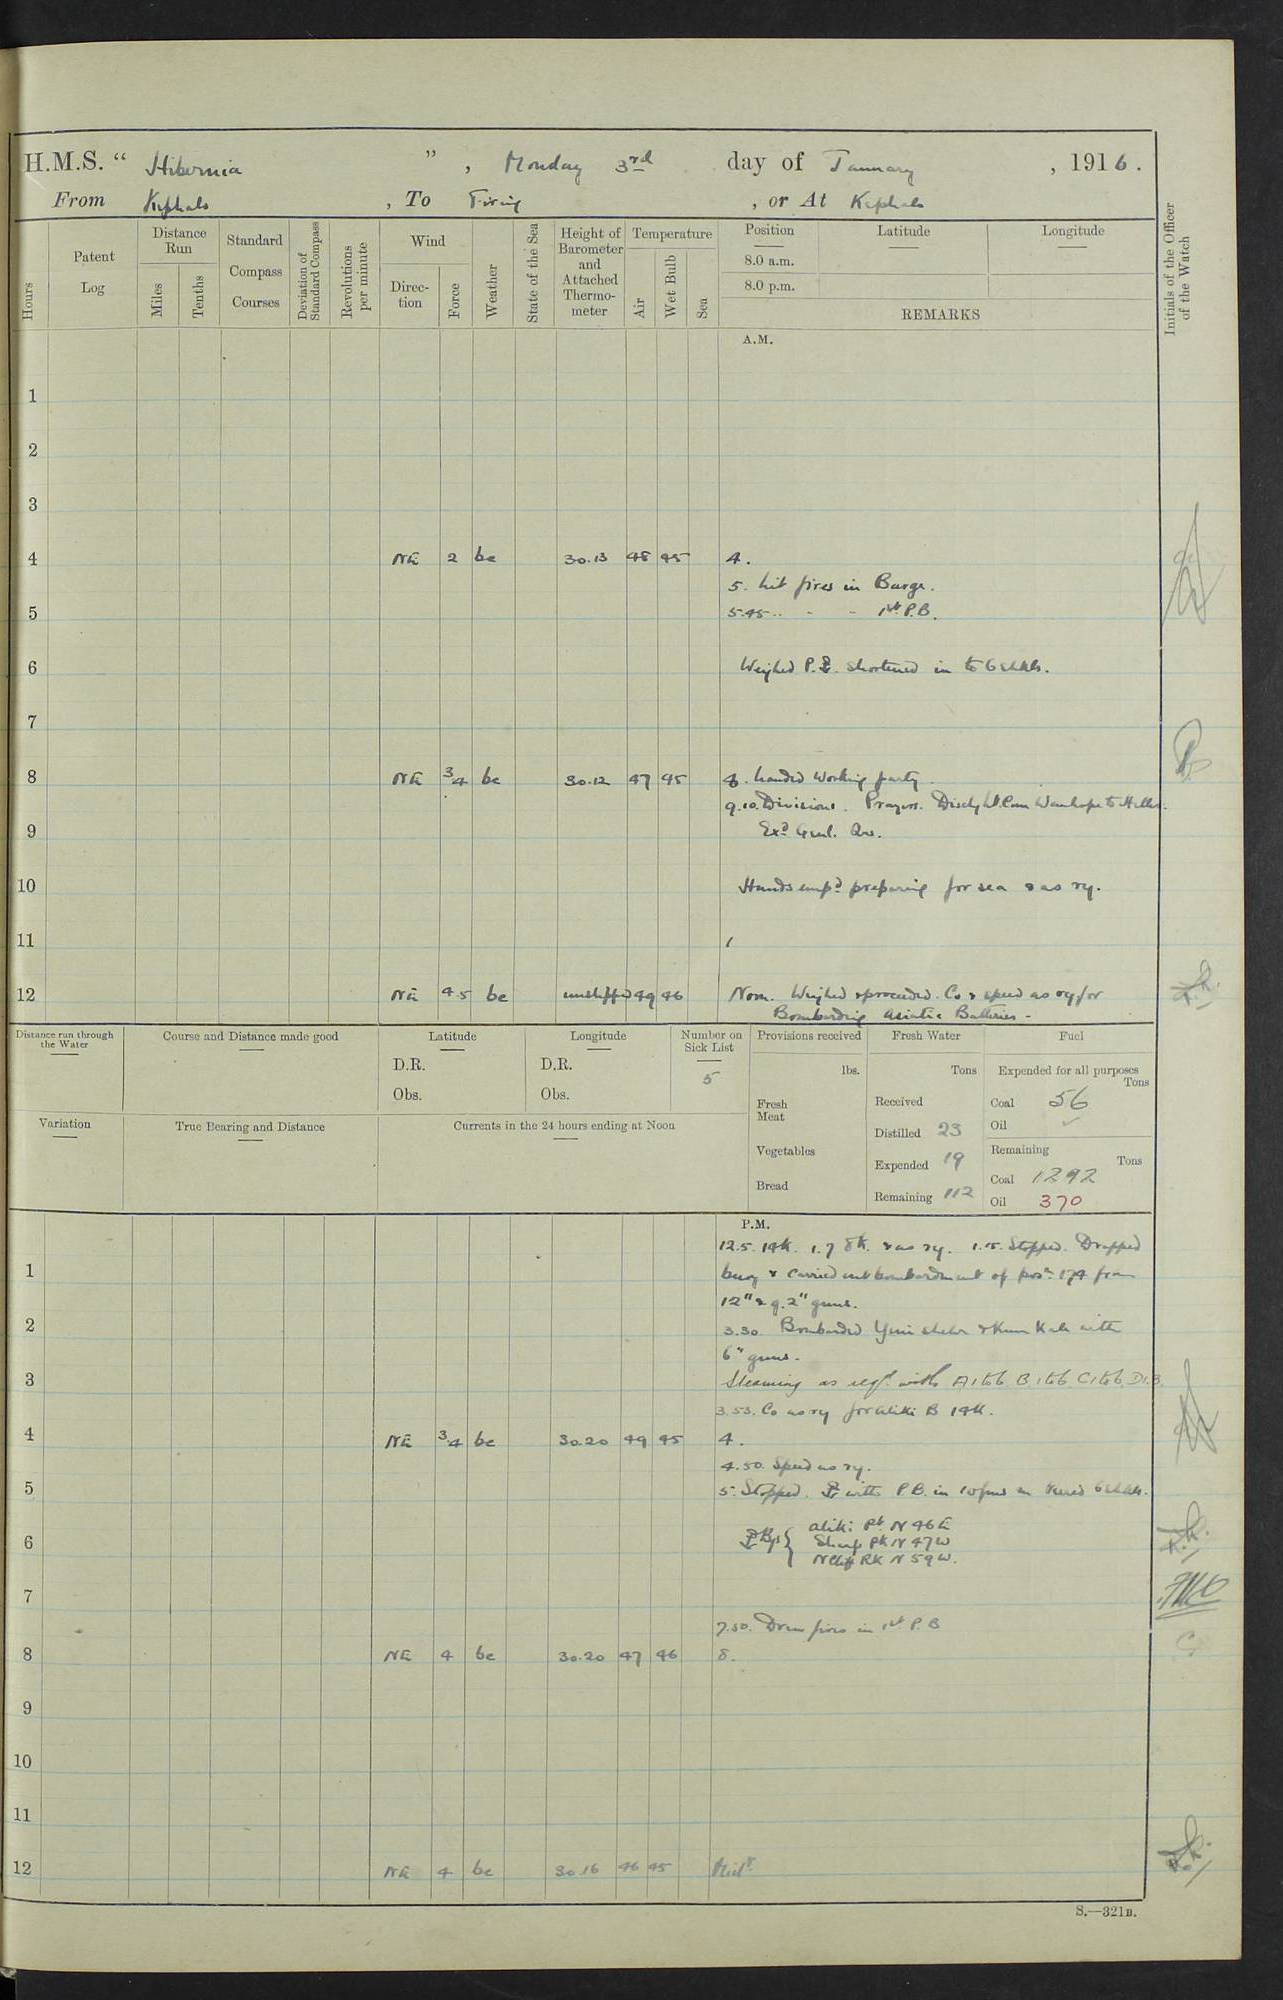 H.M.S. “ Hibernia ” , Monday 3rd day of January , 1916.
From Kephalo , To Firing , or At Kephalo
Hours
Patent Log
Distance Run
Miles
Tenths
Standard Compass Courses
Deviation of Standard Compass
Revolutions per minute
Wind
Direction
Force
Weather
State of the Sea
Height of Barometer and Attached Thermometer
Temperature
Air
Wet Bulb
Sea
Position
8.0 a.m.
8.0 p.m.
Latitude
Longitude
REMARKS
Initials of the Officer of the Watch
A.M.
1
2
3
4 NE 2 bc 30.13 48 45 4.
5. Lit fires in Barge.
5 5.45 .. - - 1st P.B.
6 Weighed P. shortened in to 6 shkls.
7
8 NE 3.4 bc 30.12 47 45 8. Landed working party.
9.10. Divisions. Prayers. Dischd Lt. Com Wauhope to Helles.
9 Exd Genl. Qrs.
10 Hands empd preparing for sea & as ry.
11
12 NE 4.5 bc unshipped 49 46 Noon. Weighed & proceeded. Co & speed as ry for
Bombarding Asiatic Batteries -
Distance run through the Water
Course and Distance made good
Latitude
D.R.
Obs.
Longitude
D.R.
Obs.
Number on Sick List
5
Provisions received
lbs.
Fresh Meat
Vegetables
Bread
Fresh Water
Tons
Received
Distilled 23
Expended 19
Remaining 112
Fuel
Expended for all purposes
Tons
Coal 56
Oil
Remaining
Tons
Coal 1292
Oil 370
Variation
True Bearing and Distance
Currents in the 24 hours ending at Noon
P.M.
12.5. 14k. 1.7 8k. & as ry. 1.15. Stopped. Dropped
1 buoy & carried out bombardment of posn 174 from
12" & 9.2" guns.
2 3.30. Bombarded Yeni Shehr & Kum Kale with
6" guns.
3 Steaming as reqd. with A 1 to 6 B 1 to 6 C 1 to 6. D1.3.
3.53. Co as ry for Aliki B 14k.
4 NE 3.4 bc 30.20 49 45 4.
4.50. Speed as ry.
5 5. Stopped. with P.B. in 10 fms veered 6 shkls.
Bgs { Aliki Pt. N 46 E
6 Sharp Pk N 47 W
N Cliff Rk N 59 W.
7
7.50. Drew fires in 1st P.B
8 NE 4 bc 30.20 47 46 8.
9
10
11
12 NE 4 bc 30.16 46 45 Midt
S.—321B.